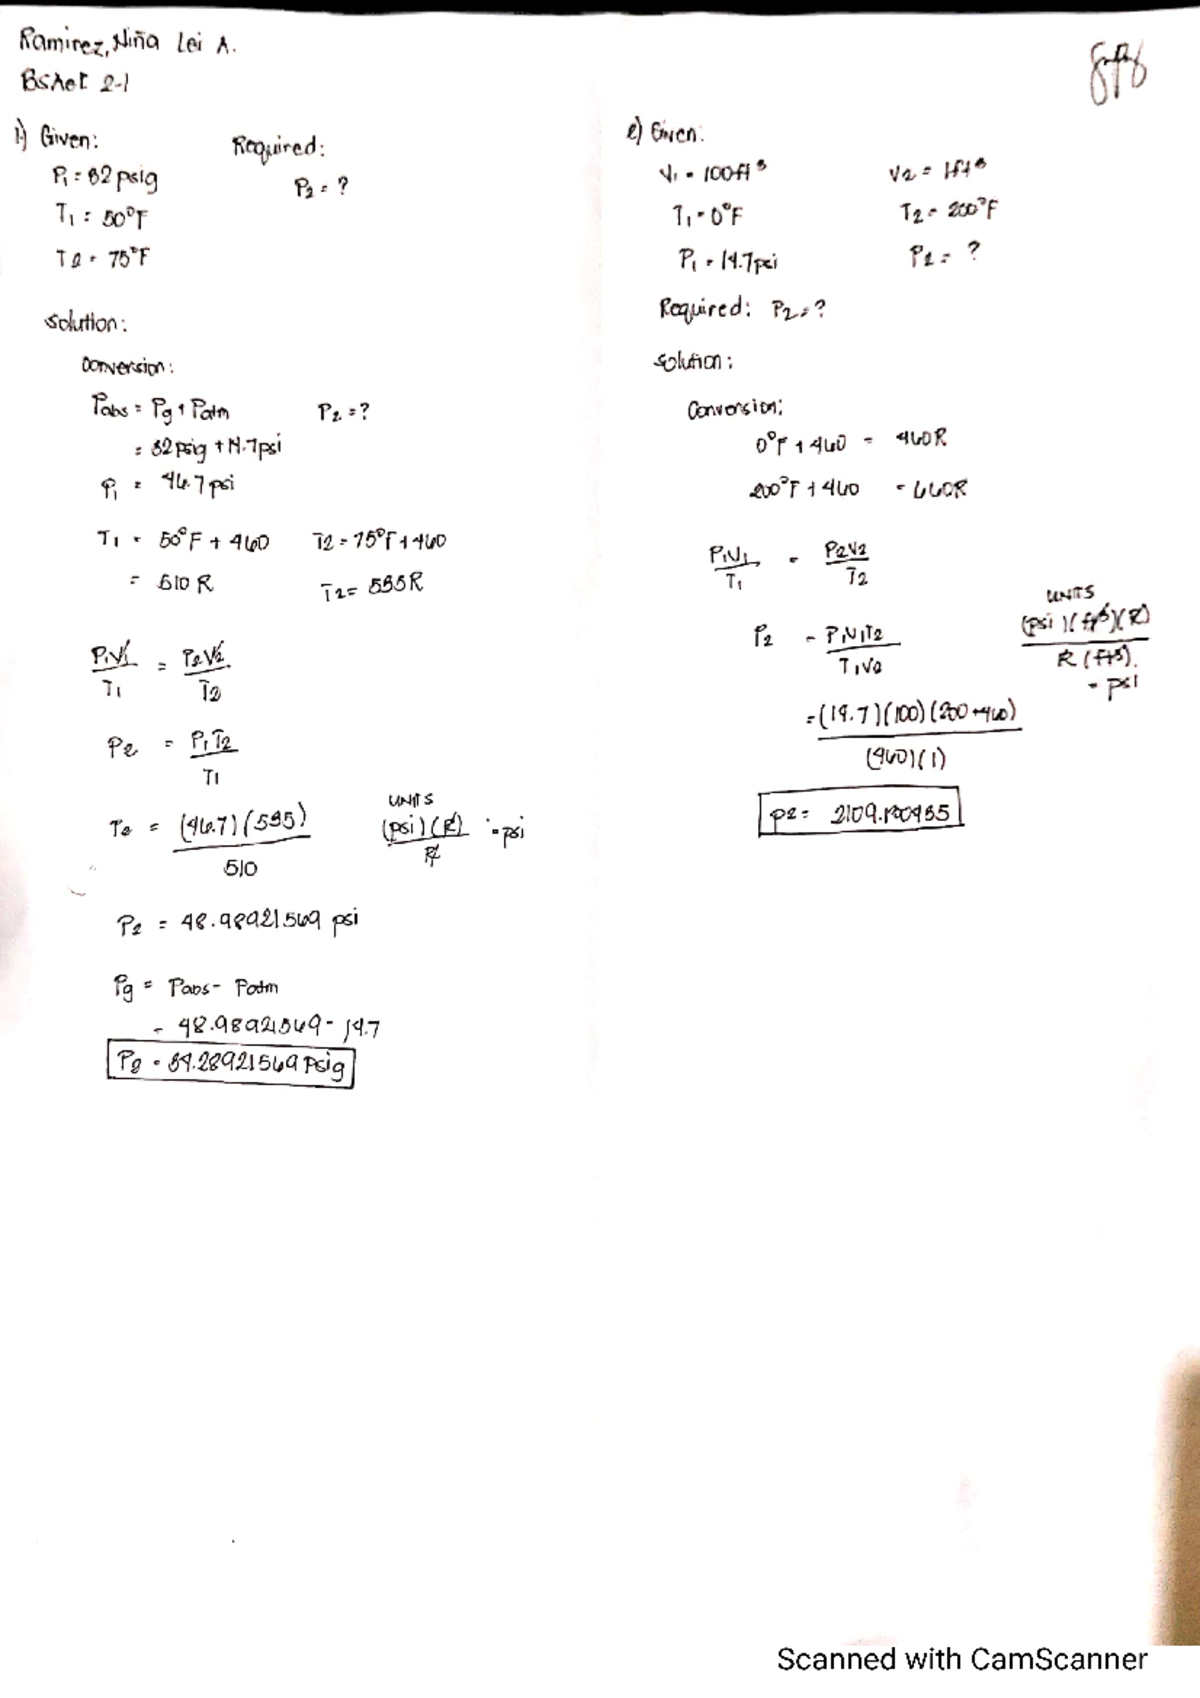 Ramirez, Niña Lei A.
BSAet 2-1
1.) Given:
Required:
P1 = 32 psig
P2 = ?
T1 = 50°F
T2 = 75°F
Solution:
Conversion:
Pabs = Pg + Patm
P2 = ?
= 32 psig + 14.7 psi
P1 = 46.7 psi
T1 = 50°F + 460
T2 = 75°F + 460
= 510 R
T2 = 535 R
P1V1 / T1 = P2V2 / T2
P2 = P1T2 / T1
= (46.7)(535) / 510
UNITS
(psi)(R) / R = psi
P2 = 48.98921569 psi
Pg = Pabs - Patm
= 48.98921569 - 14.7
Pg = 34.28921569 Psig
2) Given:
V1 = 100 ft³
V2 = 1 ft³
T1 = 0°F
T2 = 200°F
P1 = 14.7 psi
P2 = ?
Required: P2 = ?
Solution:
Conversion:
0°F + 460 = 460R
200°F + 460 = 660R
P1V1 / T1 = P2V2 / T2
P2 = P1V1T2 / T1V2
UNITS
(psi)(ft³)(R) / R(ft³)
= psi
= (14.7)(100)(200+460) / (460)(1)
P2 = 2109.130435
Scanned with CamScanner